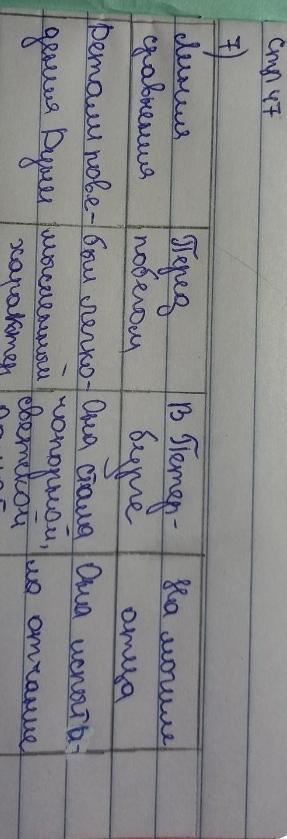 Стр 47
7)
Линия сравнения
Перед побегом
В Петер-
бурге
На могиле отца
Детали пове-
дения Дуни
был легко-
мысленный
характер
Она стала
чопорной,
светской
Она испыты-
ла отчаяние